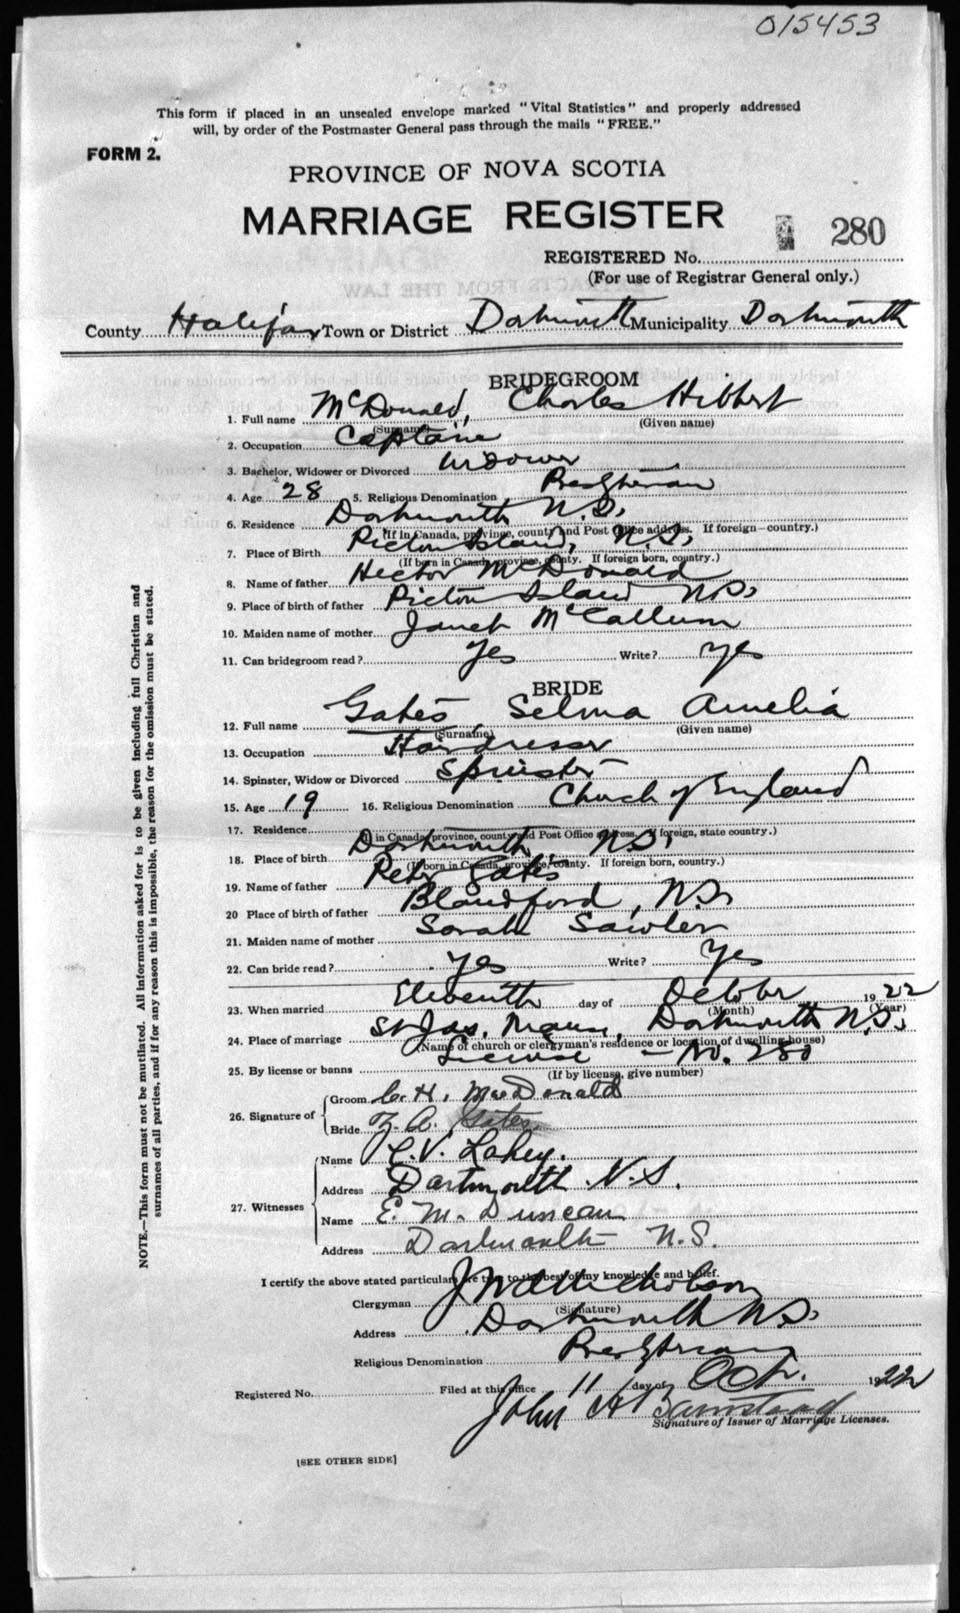 015453
This form if placed in an unsealed envelope marked "Vital Statistics" and properly addressed
will, by order of the Postmaster General pass through the mails "FREE."
FORM 2.
PROVINCE OF NOVA SCOTIA
MARRIAGE REGISTER
280
REGISTERED No.
(For use of Registrar General only.)
County Halifax Town or District Dartmouth Municipality Dartmouth
BRIDEGROOM
1. Full name McDonald, Charles Hibbert
(Surname) (Given name)
2. Occupation Captain
3. Bachelor, Widower or Divorced Widower
4. Age 28 5. Religious Denomination Presbyterian
6. Residence Dartmouth N.S.
(If in Canada, province, county and Post Office address. If foreign country.)
7. Place of Birth Pictou Island, N.S.
(If born in Canada, province, county. If foreign born, country.)
8. Name of father Hector McDonald
9. Place of birth of father Pictou Island N.S.
10. Maiden name of mother Janet McCallum
11. Can bridegroom read? Yes Write? Yes
BRIDE
12. Full name Gates, Selma Amelia
(Surname) (Given name)
13. Occupation Hairdresser
14. Spinster, Widow or Divorced Spinster
15. Age 19 16. Religious Denomination Church of England
17. Residence
(If in Canada, province, county and Post Office address, if foreign, state country.)
18. Place of birth Dartmouth N.S.
(If born in Canada, province, county. If foreign born, country.)
19. Name of father Peter Gates
20 Place of birth of father Blandford, N.S.
21. Maiden name of mother Sarah Sawler
22. Can bride read? Yes Write? Yes
23. When married Eleventh day of October 1922
(Month) (Year)
24. Place of marriage St Jas. Manse, Dartmouth N.S.
(Name of church or clergyman's residence or location of dwelling house)
25. By license or banns License - No. 280
(If by license, give number)
26. Signature of
Groom C. H. MacDonald
Bride A. Gates
27. Witnesses
Name C.V. Lahey.
Address Dartmouth N.S.
Name E. M. Duncan
Address Dartmouth N.S.
I certify the above stated particulars are true to the best of my knowledge and belief.
Clergyman
(Signature)
Address Dartmouth N.S.
Religious Denomination Presbyterian
Registered No. Filed at this office 11 day of Oct. 1922
John
Signature of Issuer of Marriage Licenses.
[SEE OTHER SIDE]
NOTE.—This form must not be mutilated. All information asked for is to be given including full Christian and
surnames of all parties, and if for any reason this is impossible, the reason for the omission must be stated.